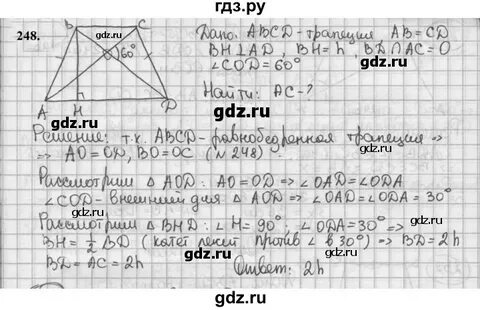 гдз.ру
248.
B C
60°
A H D
Дано: ABCD - трапеция, AB = CD
BH ⊥ AD, BH = h, BD ∩ AC = O
∠COD = 60°
Найти: AC - ?
Решение: т.к. ABCD - равнобедренная трапеция =>
=> AO = OD, BO = OC (N 248)
Рассмотрим △ AOD: AO = OD => ∠OAD = ∠ODA
∠COD - внешний для △ AOD => ∠OAD = ∠ODA = 30°
Рассмотрим △ BHD: ∠H = 90°, ∠ODA = 30° =>
BH = ½ BD (катет лежит против ∠ в 30°) => BD = 2h
BD = AC = 2h Ответ: 2h
gdz.ru
gdz.ru
gdz.ru
gdz.ru
gdz.ru
gdz.ru
gdz.ru
gdz.ru
gdz.ru
gdz.ru
gdz.ru